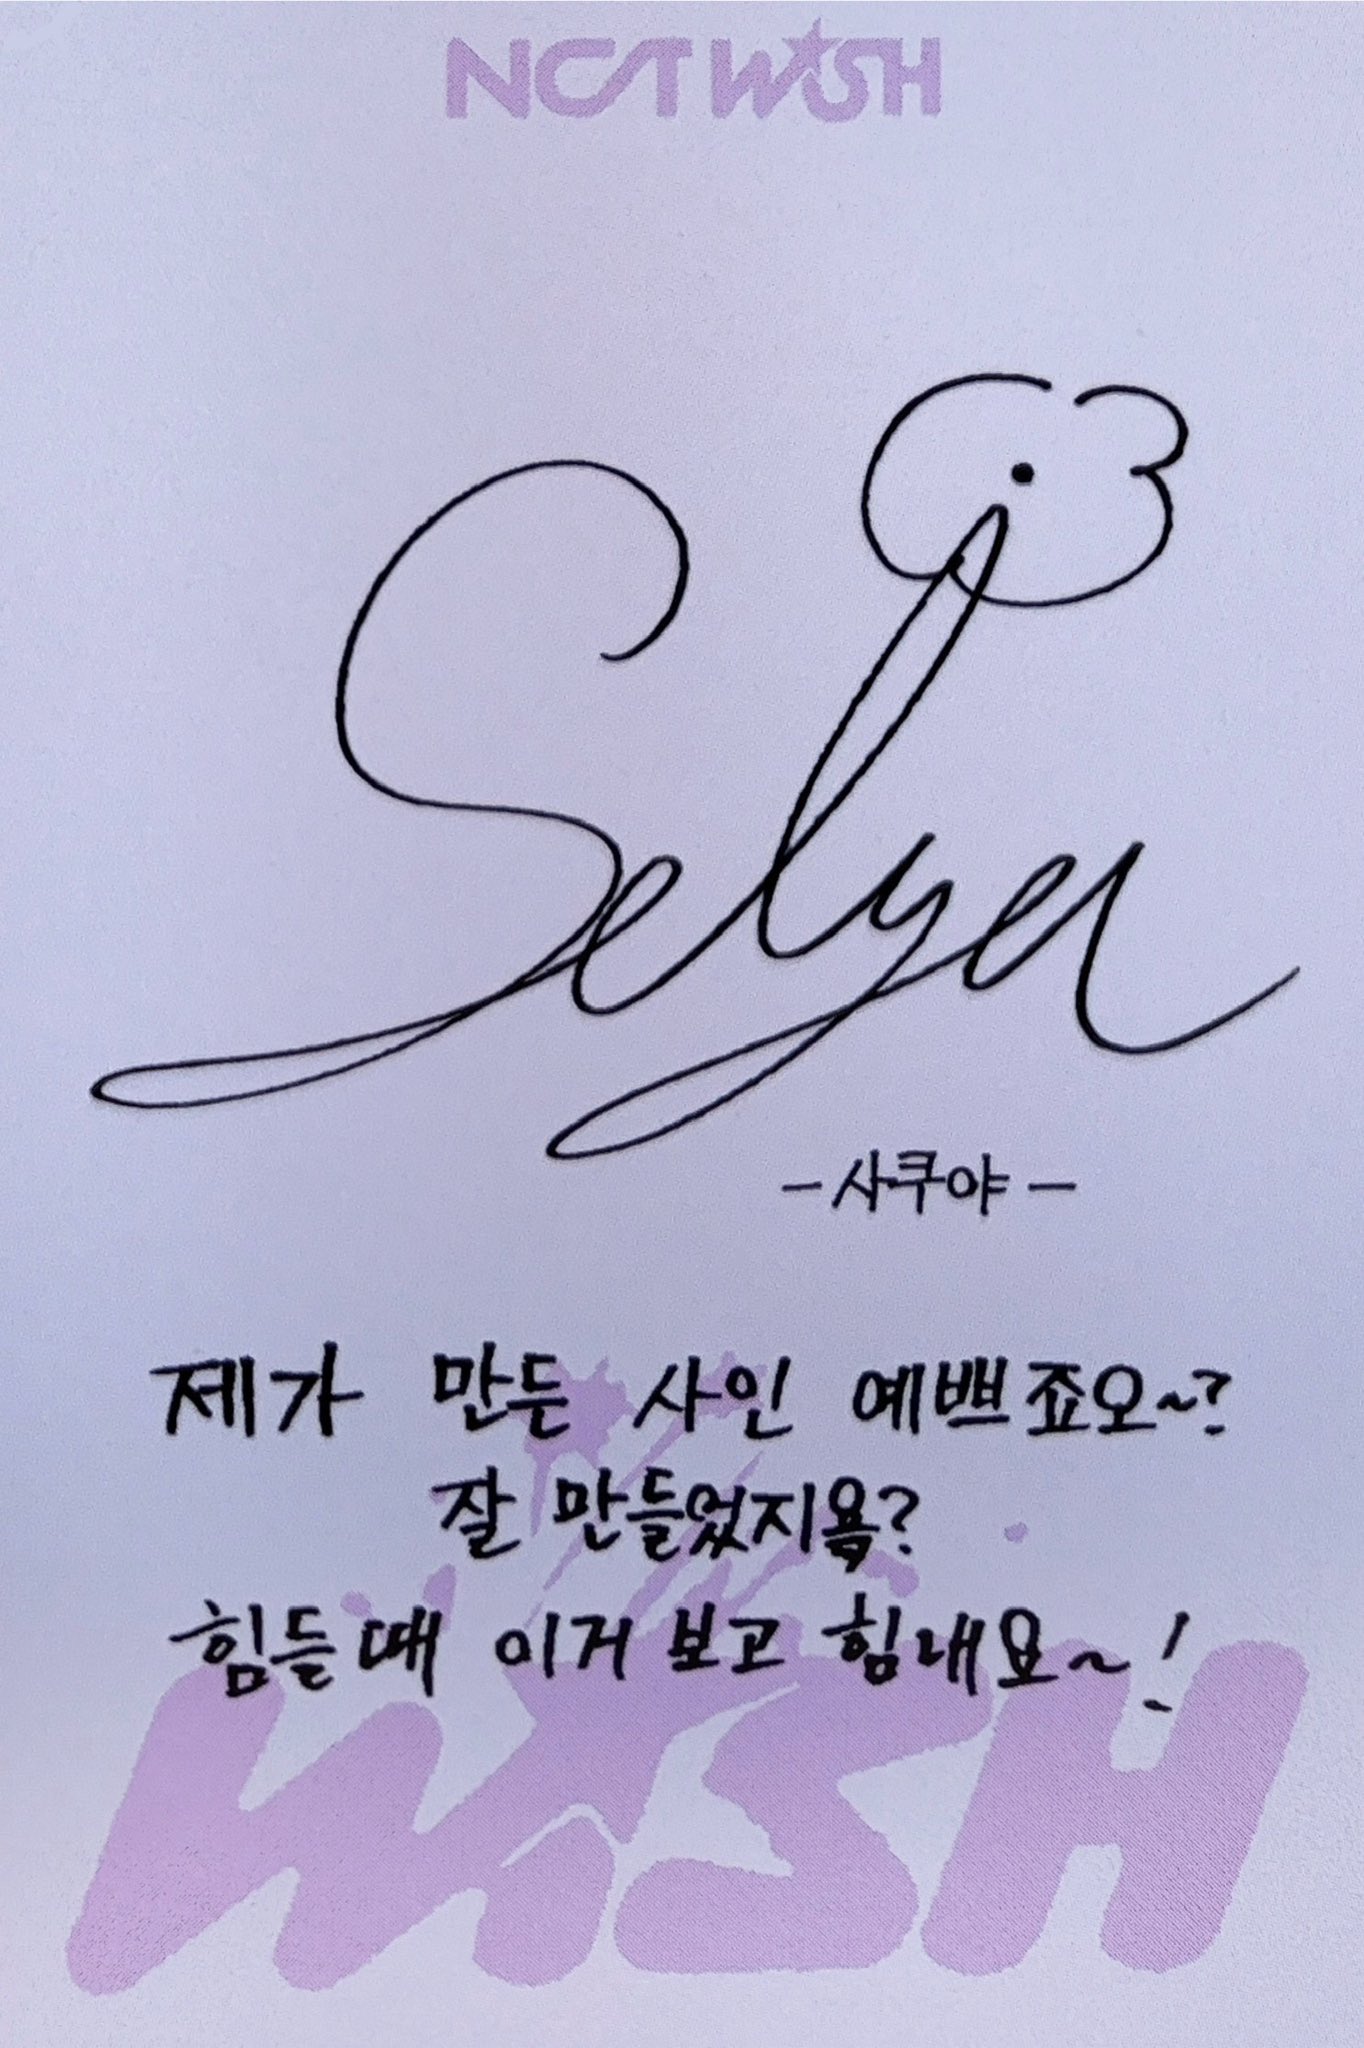 NCT WISH
Selya
-사쿠야-
제가 만든 사인 예쁘죠오~?
잘 만들었지욥?
힘들때 이거 보고 힘내요~!
WISH